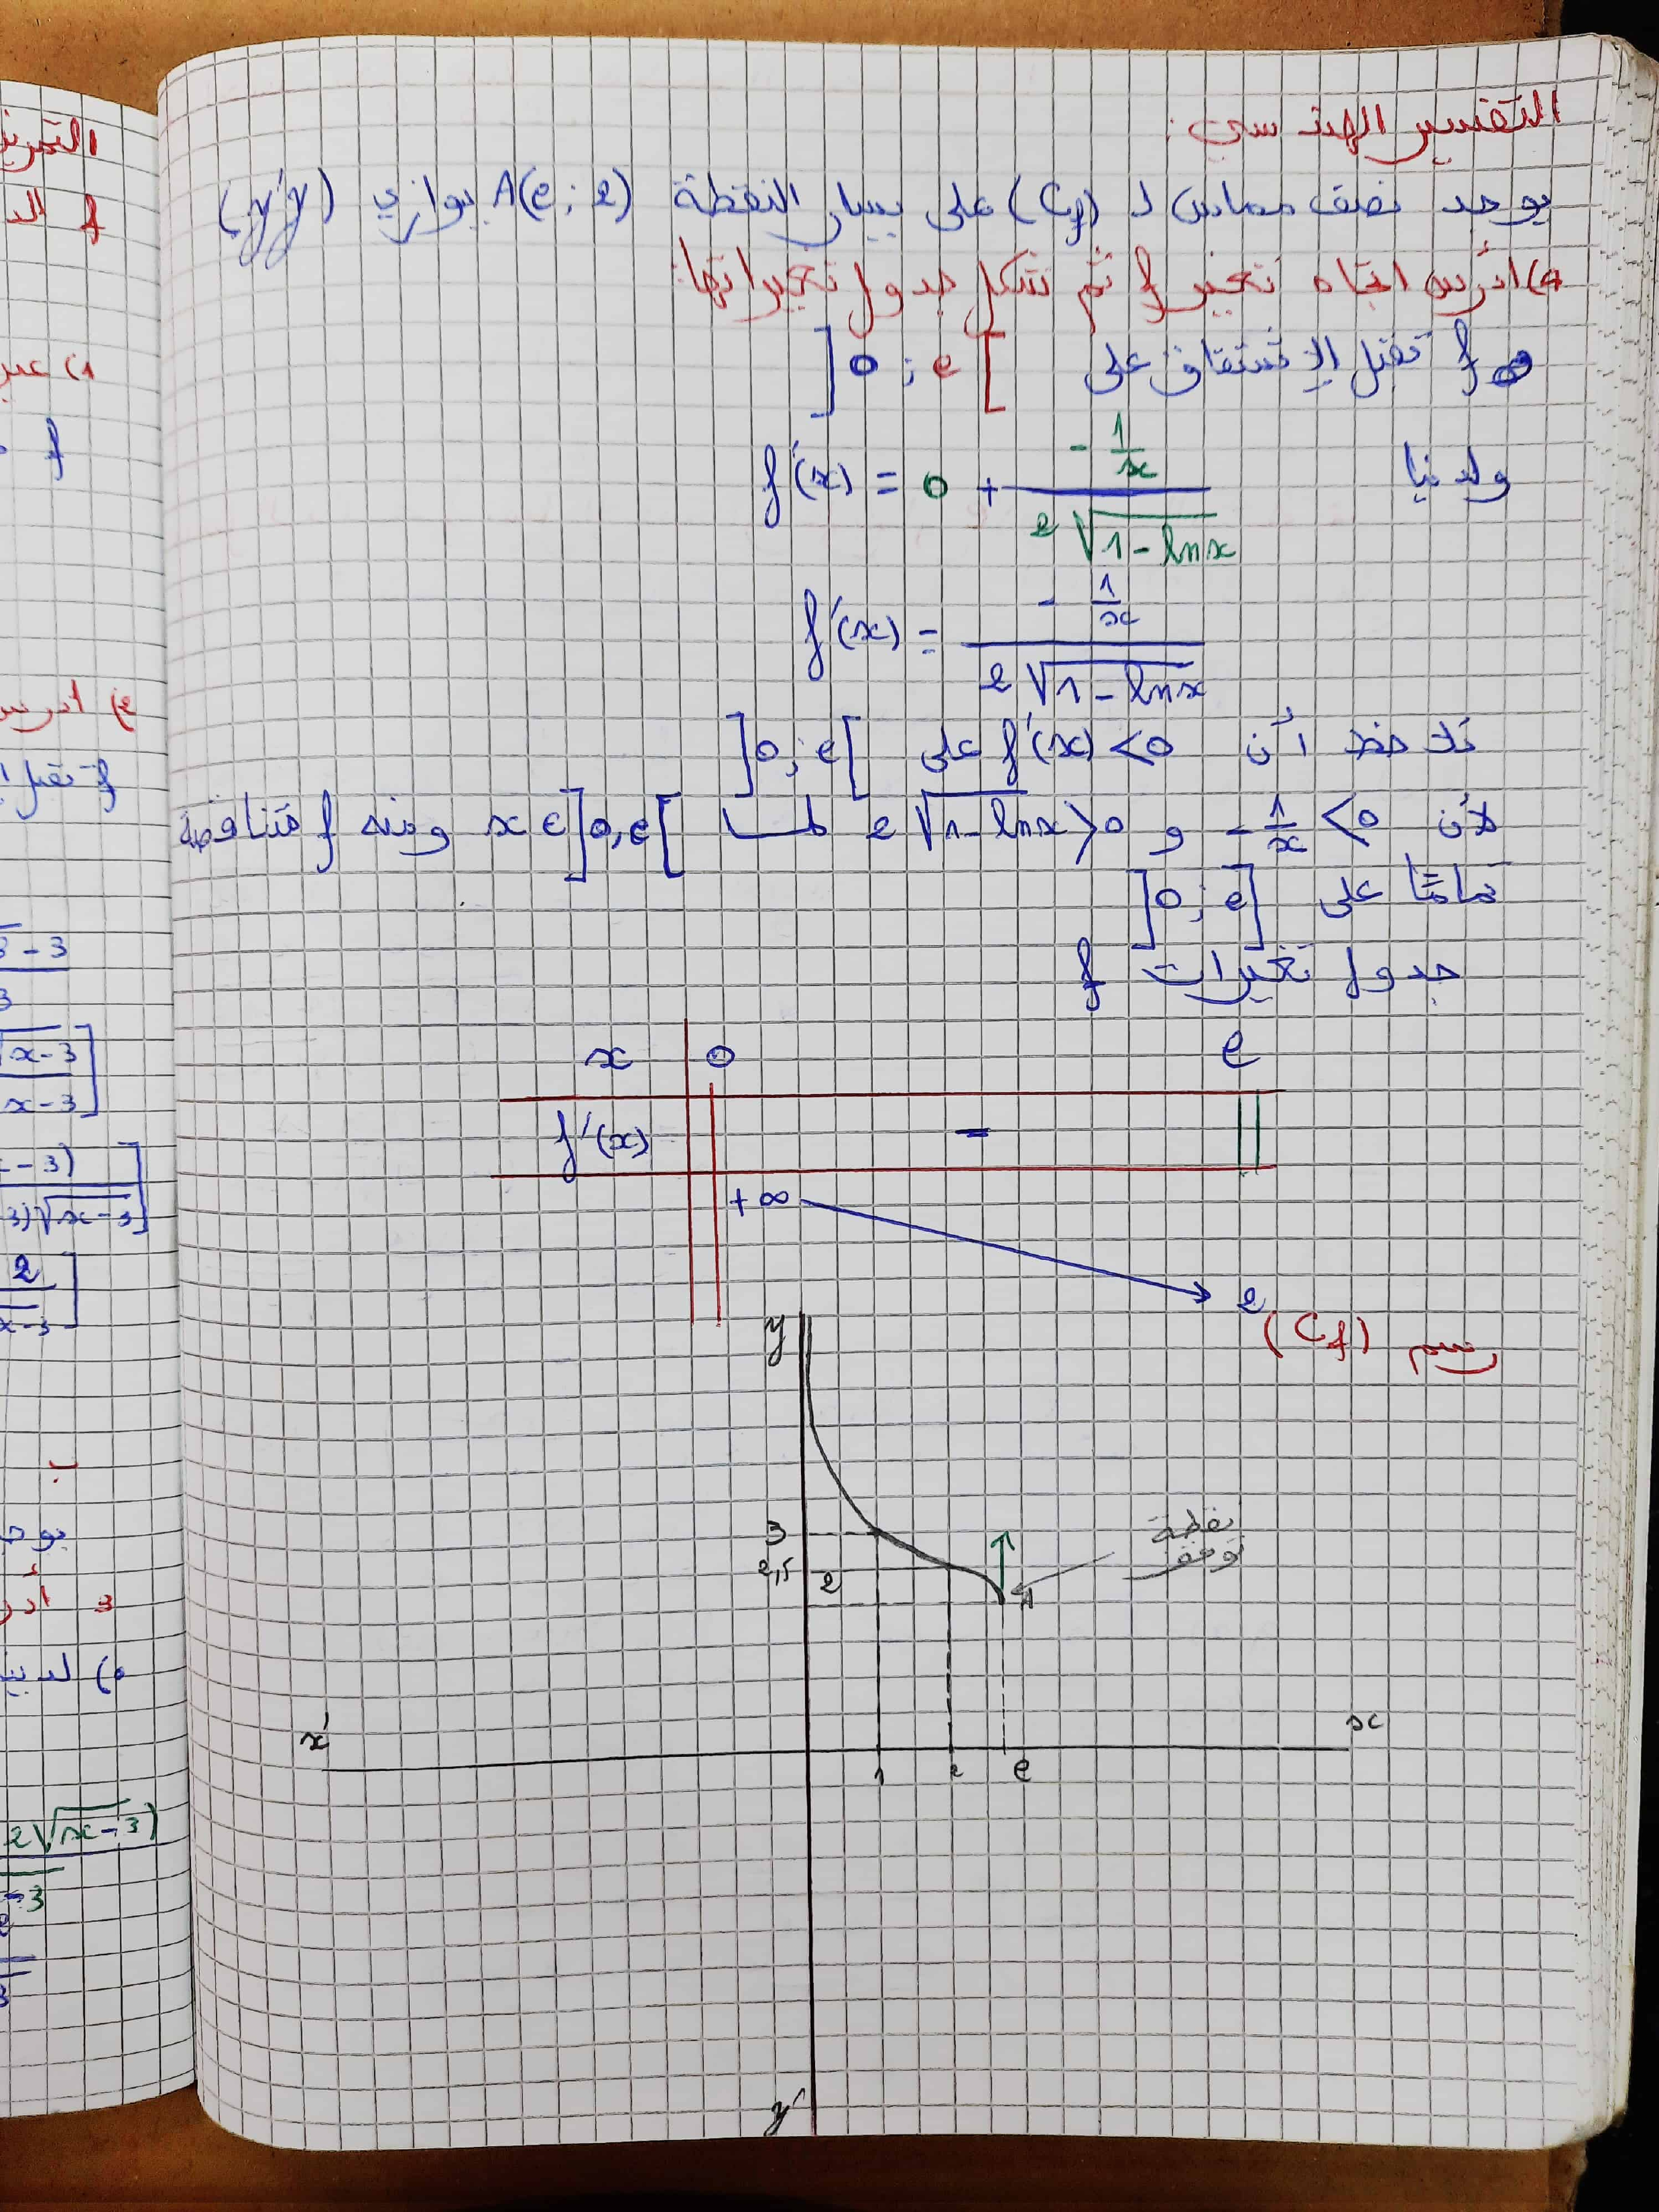 التفسير الهندسي:
يوجد نصف مماس لـ (Cf) على يسار النقطة A(e ; 2) يوازي (y'y).
ادرس اتجاه تغير f ثم شكل جدول تغيراتها:
f تقبل الإشتقاق على ]0 ; e[
ولدينا f'(x) = 0 + (-1/x)/(2√(1-lnx))
f'(x) = (-1/x)/(2√(1-lnx))
نلاحظ أن f'(x) < 0 على ]0 ; e[
لأن -1/x < 0 و 2√(1-lnx) > 0 لما x ∈ ]0, e[ ومنه f متناقصة
تمامًا على ]0 ; e]
جدول تغيرات f
x 0 e
f'(x) -
+∞ 2
رسم (Cf)
y
3
2,5
2
A
نقطة
توقف
x' x
1 2 e
y'
التمرين
f
f تقبل
x-3
2
ب
2√(x-3)